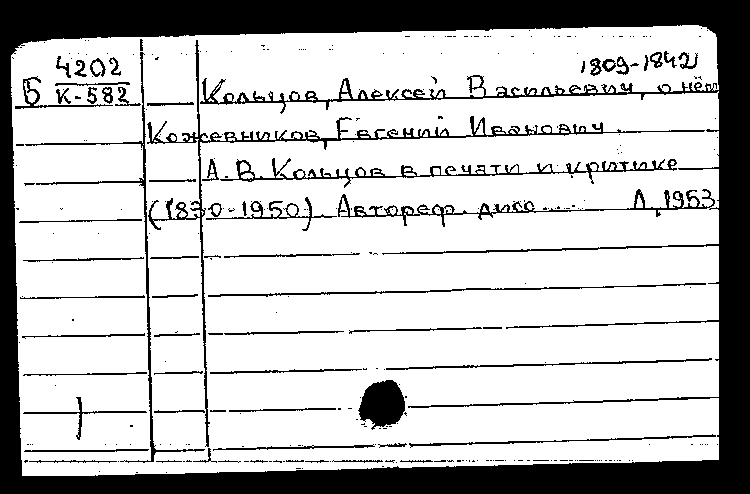 1809-1842
Б 4202
К-582
Кольцов, Алексей Васильевич, о нём
Кожевников, Евгений Иванович.
А.В. Кольцов в печати и критике
(1830-1950). Автореф. дисс.... Л, 1953